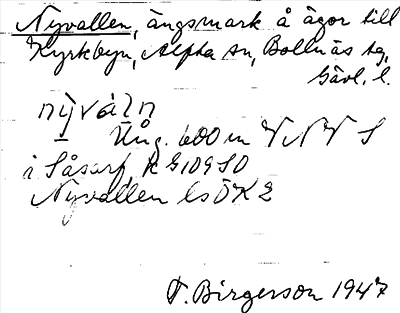 Nyvallen, ängsmark å ägor till
Kyrkbyn, Alfta sn, Bollnäs tg,
Gävl. l.
nỳváln
Ung. 600 m VNV S
i Såsarf, k G109 SO
Nyvallen ls ÖK 2
T. Birgerson 1947